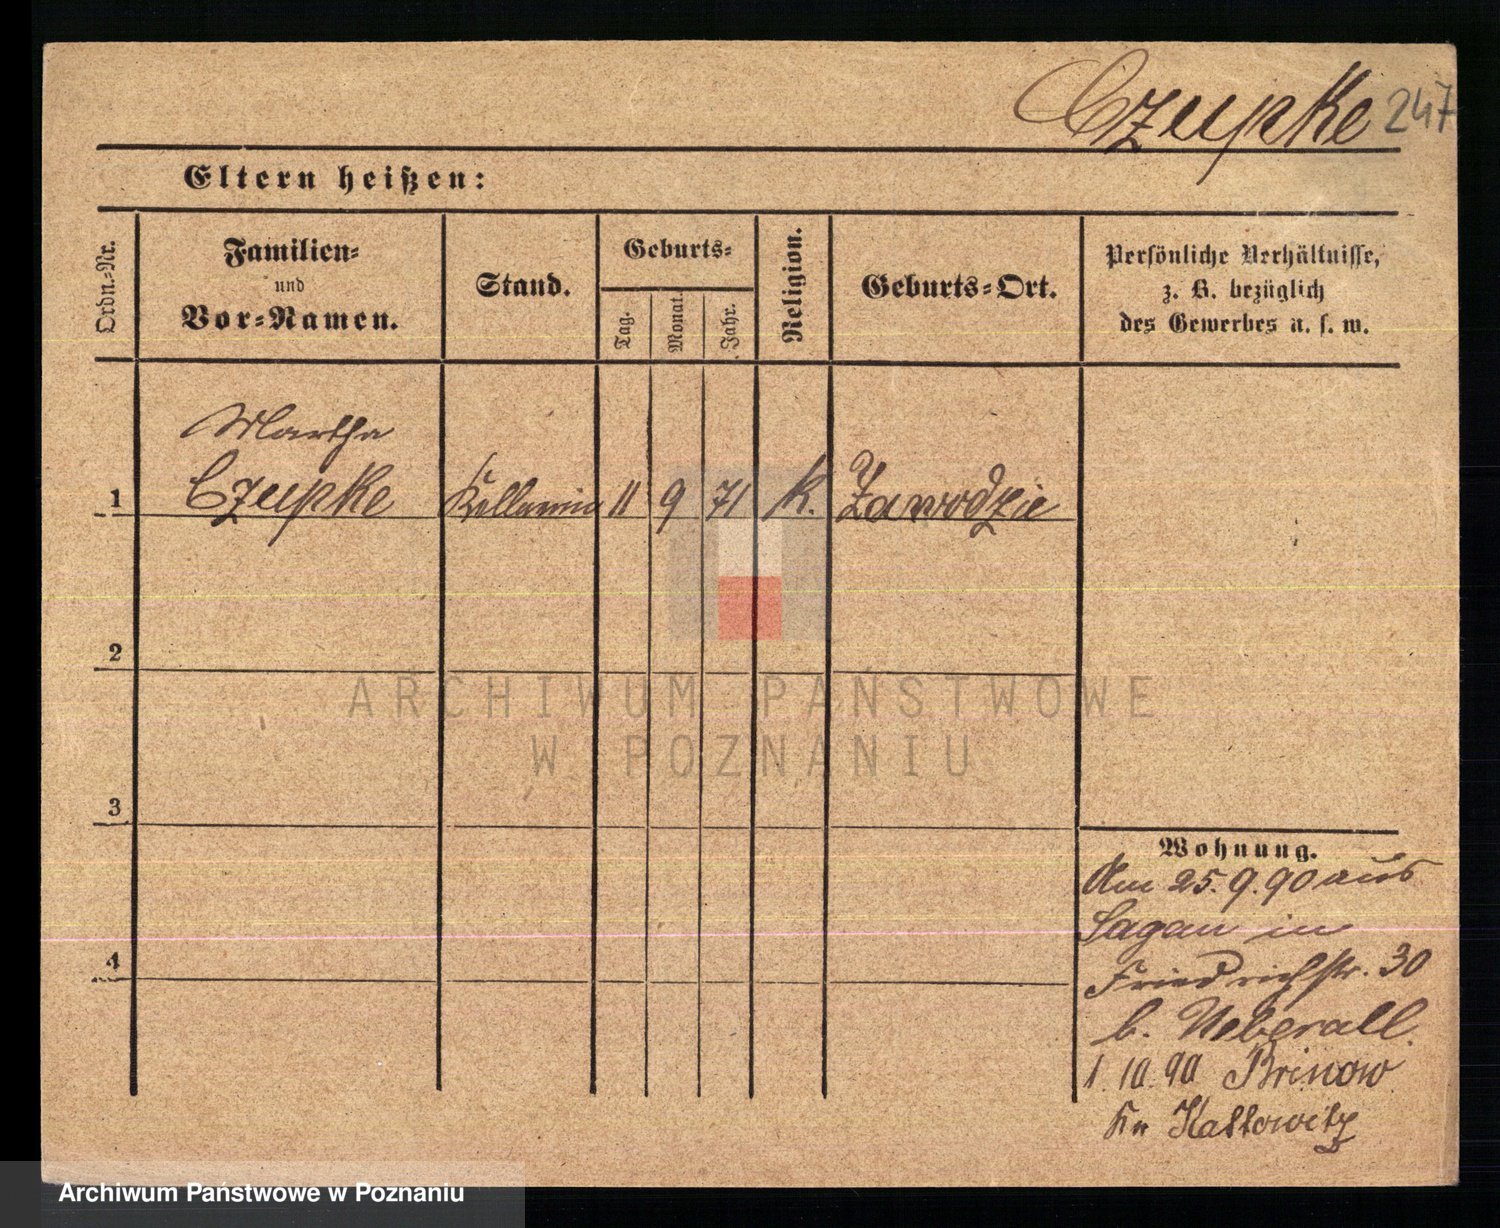 Czupke 247
Eltern heißen:
Ordn.-Nr.
Familien-
und
Vor-Namen.
Stand.
Geburts-
Tag.
Monat.
Jahr.
Religion.
Geburts-Ort.
Persönliche Verhältnisse,
z. B. bezüglich
des Gewerbes u. s. w.
Martha
1 Czupke Kellnerin 11 9 71 K. Zawodzie
2
3
4
Wohnung.
Am 25.9.90 aus
Sagan in
Friedrichstr. 30
b. Ueberall.
1.10.90 Brinow
Kr. Kattowitz
ARCHIWUM PAŃSTWOWE
W POZNANIU
Archiwum Państwowe w Poznaniu